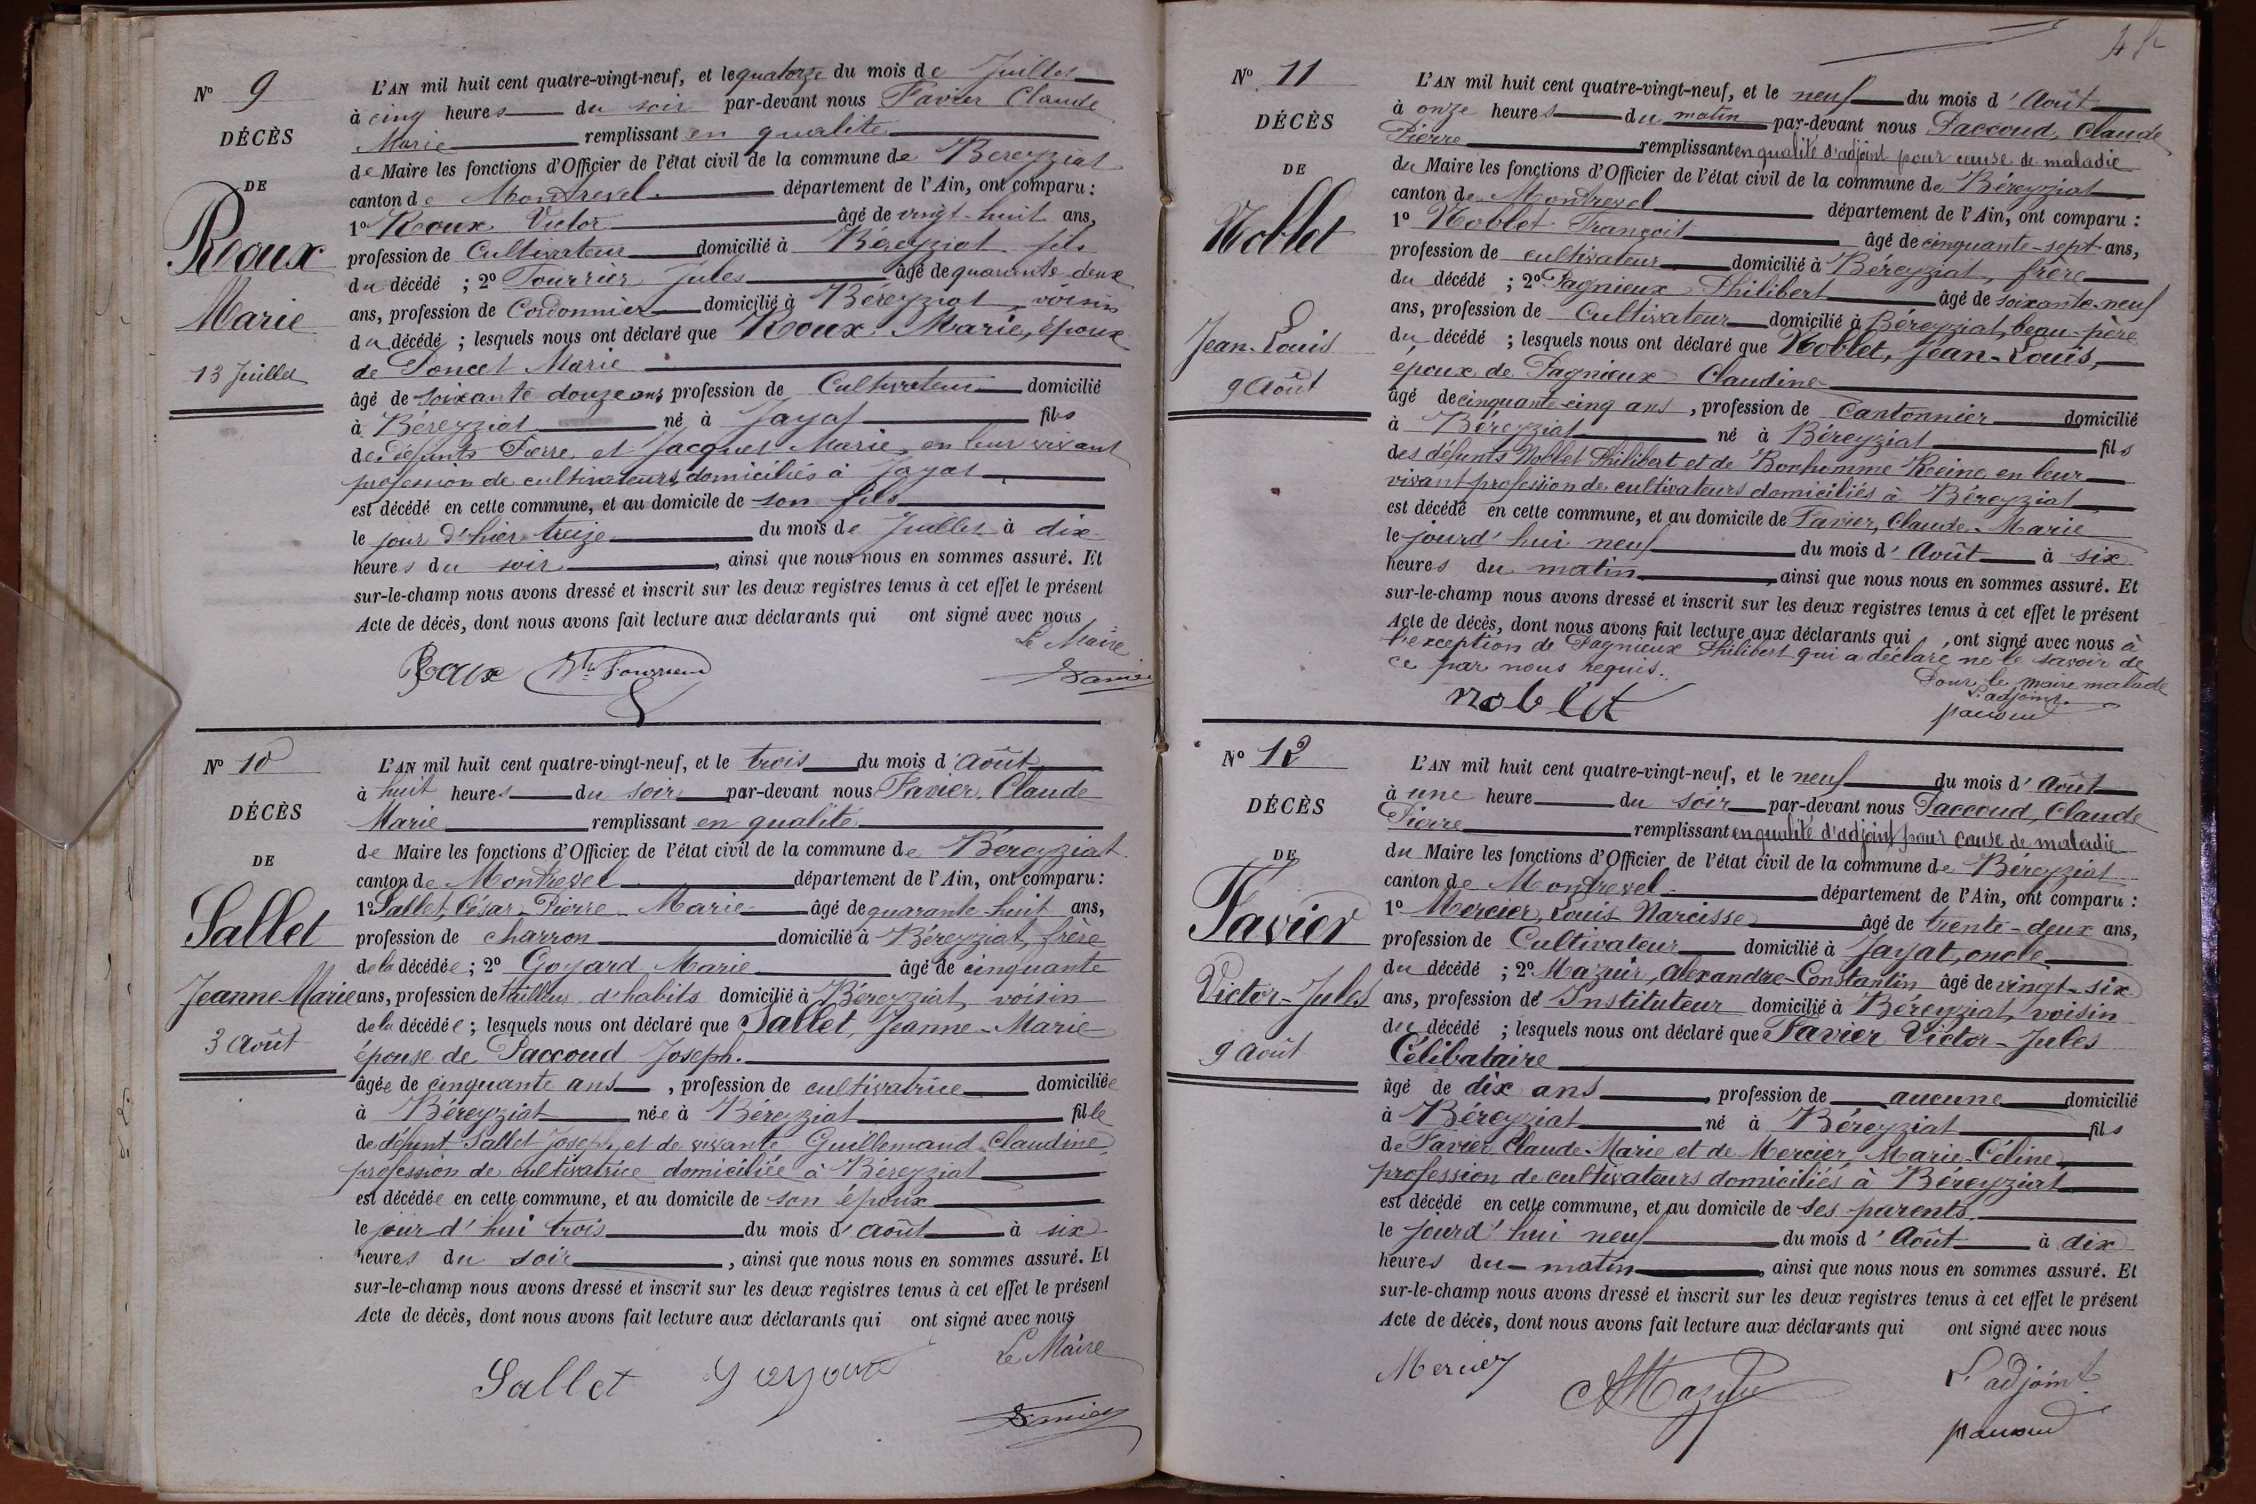 N° 9
DÉCÈS
DE
Roux
Marie
13 Juillet
L'AN mil huit cent quatre-vingt-neuf, et le quatorze du mois de Juillet
à cinq heures du soir par-devant nous Favier Claude
Marie remplissant en qualité
de Maire les fonctions d'Officier de l'état civil de la commune de Béreyziat
canton de Montrevel département de l'Ain, ont comparu :
1° Roux Victor âgé de vingt-huit ans,
profession de Cultivateur domicilié à Béreyziat fils
du décédé ; 2° Fourrier Jules âgé de quarante-deux
ans, profession de Cordonnier domicilié à Béreyziat, voisin
du décédé ; lesquels nous ont déclaré que Roux Marie, époux
de Poncet Marie
âgé de soixante douze ans profession de Cultivateur domicilié
à Béreyziat né à Jayat fils
de défunts Pierre et Jacquet Marie, en leur vivant
profession de cultivateurs domiciliés à Jayat
est décédé en cette commune, et au domicile de son fils
le jour d'hier treize du mois de Juillet à dix
heures du soir, ainsi que nous nous en sommes assuré. Et
sur-le-champ nous avons dressé et inscrit sur les deux registres tenus à cet effet le présent
Acte de décès, dont nous avons fait lecture aux déclarants qui ont signé avec nous
Le Maire
Roux
N° 10
DÉCÈS
DE
Sallet
Jeanne Marie
3 Août
L'AN mil huit cent quatre-vingt-neuf, et le trois du mois d'Août
à huit heures du soir par-devant nous Favier, Claude
Marie remplissant en qualité
de Maire les fonctions d'Officier de l'état civil de la commune de Béreyziat
canton de Montrevel département de l'Ain, ont comparu :
1° Sallet, César-Pierre-Marie âgé de quarante-huit ans,
profession de charron domicilié à Béreyziat, frère
de la décédée ; 2° Goyard Marie âgé de cinquante
ans, profession de tailleur d'habits domicilié à Béreyziat, voisin
de la décédée ; lesquels nous ont déclaré que Sallet, Jeanne-Marie
épouse de Paccoud Joseph.
âgée de cinquante ans, profession de cultivatrice domiciliée
à Béreyziat née à Béreyziat fille
de défunt Sallet Joseph, et de vivante Guillemaud Claudine,
profession de cultivatrice domiciliée à Béreyziat
est décédée en cette commune, et au domicile de son époux
le jour d'hui trois du mois d'Août à six
heures du soir, ainsi que nous nous en sommes assuré. Et
sur-le-champ nous avons dressé et inscrit sur les deux registres tenus à cet effet le présent
Acte de décès, dont nous avons fait lecture aux déclarants qui ont signé avec nous
Le Maire
Sallet
N° 11
DÉCÈS
DE
Noblet
Jean-Louis
9 Août
L'AN mil huit cent quatre-vingt-neuf, et le neuf du mois d'Août
à onze heures du matin par-devant nous Paccoud, Claude
Pierre remplissant en qualité d'adjoint pour cause de maladie
du Maire les fonctions d'Officier de l'état civil de la commune de Béreyziat
canton de Montrevel département de l'Ain, ont comparu :
1° Noblet François âgé de cinquante-sept ans,
profession de cultivateur domicilié à Béreyziat, frère
du décédé ; 2° Pagnieux Philibert âgé de soixante-neuf
ans, profession de Cultivateur domicilié à Béreyziat, beau-père
du décédé ; lesquels nous ont déclaré que Noblet, Jean-Louis,
époux de Pagnieux Claudine
âgé de cinquante-cinq ans, profession de Cantonnier domicilié
à Béreyziat né à Béreyziat fils
des défunts Noblet Philibert et de Bonhomme Reine, en leur
vivant profession de cultivateurs domiciliés à Béreyziat
est décédé en cette commune, et au domicile de Favier, Claude-Marie
le jourd'hui neuf du mois d'Août à six
heures du matin, ainsi que nous nous en sommes assuré. Et
sur-le-champ nous avons dressé et inscrit sur les deux registres tenus à cet effet le présent
Acte de décès, dont nous avons fait lecture aux déclarants qui ont signé avec nous à
l'exception de Pagnieux Philibert qui a déclaré ne le savoir de
ce par nous requis.
Pour le maire malade
L'adjoint
noblet
paccoud
N° 12
DÉCÈS
DE
Favier
Victor-Jules
9 Août
L'AN mil huit cent quatre-vingt-neuf, et le neuf du mois d'Août
à une heure du soir par-devant nous Paccoud, Claude
Pierre remplissant en qualité d'adjoint pour cause de maladie
du Maire les fonctions d'Officier de l'état civil de la commune de Béreyziat
canton de Montrevel département de l'Ain, ont comparu :
1° Mercier, Louis Narcisse âgé de trente-deux ans,
profession de Cultivateur domicilié à Jayat, oncle
du décédé ; 2° Mazuir, Alexandre-Constantin âgé de vingt-six
ans, profession de Instituteur domicilié à Béreyziat, voisin
du décédé ; lesquels nous ont déclaré que Favier Victor-Jules
Célibataire
âgé de dix ans, profession de aucune domicilié
à Béreyziat né à Béreyziat fils
de Favier Claude-Marie et de Mercier, Marie-Céline,
profession de cultivateurs domiciliés à Béreyziat
est décédé en cette commune, et au domicile de ses parents.
le jourd'hui neuf du mois d'Août à dix
heures du matin, ainsi que nous nous en sommes assuré. Et
sur-le-champ nous avons dressé et inscrit sur les deux registres tenus à cet effet le présent
Acte de décès, dont nous avons fait lecture aux déclarants qui ont signé avec nous
Mercier
L'adjoint
paccoud